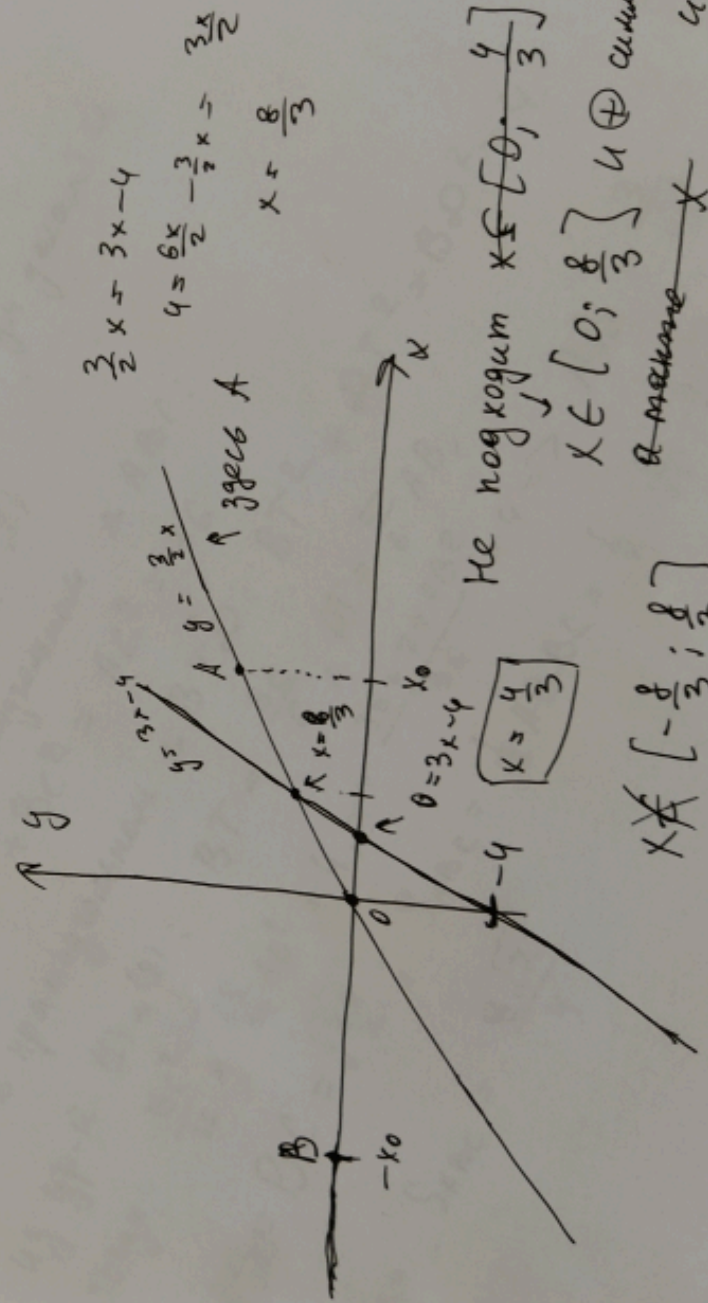 y
y = 3x-4
A
y = 3/2 x
↑ здесь A
x = 8/3
B
-x₀
0
x₀
x
-4
0 = 3x-4
x = 4/3
3/2 x = 3x-4
4 = 6x/2 - 3/2 x = 3x/2
x = 8/3
Не подходит x ∈ [0; 4/3]
x ∈ [0; 8/3] и ⊕
а также x
x ∉ [-8/3; 8/3]